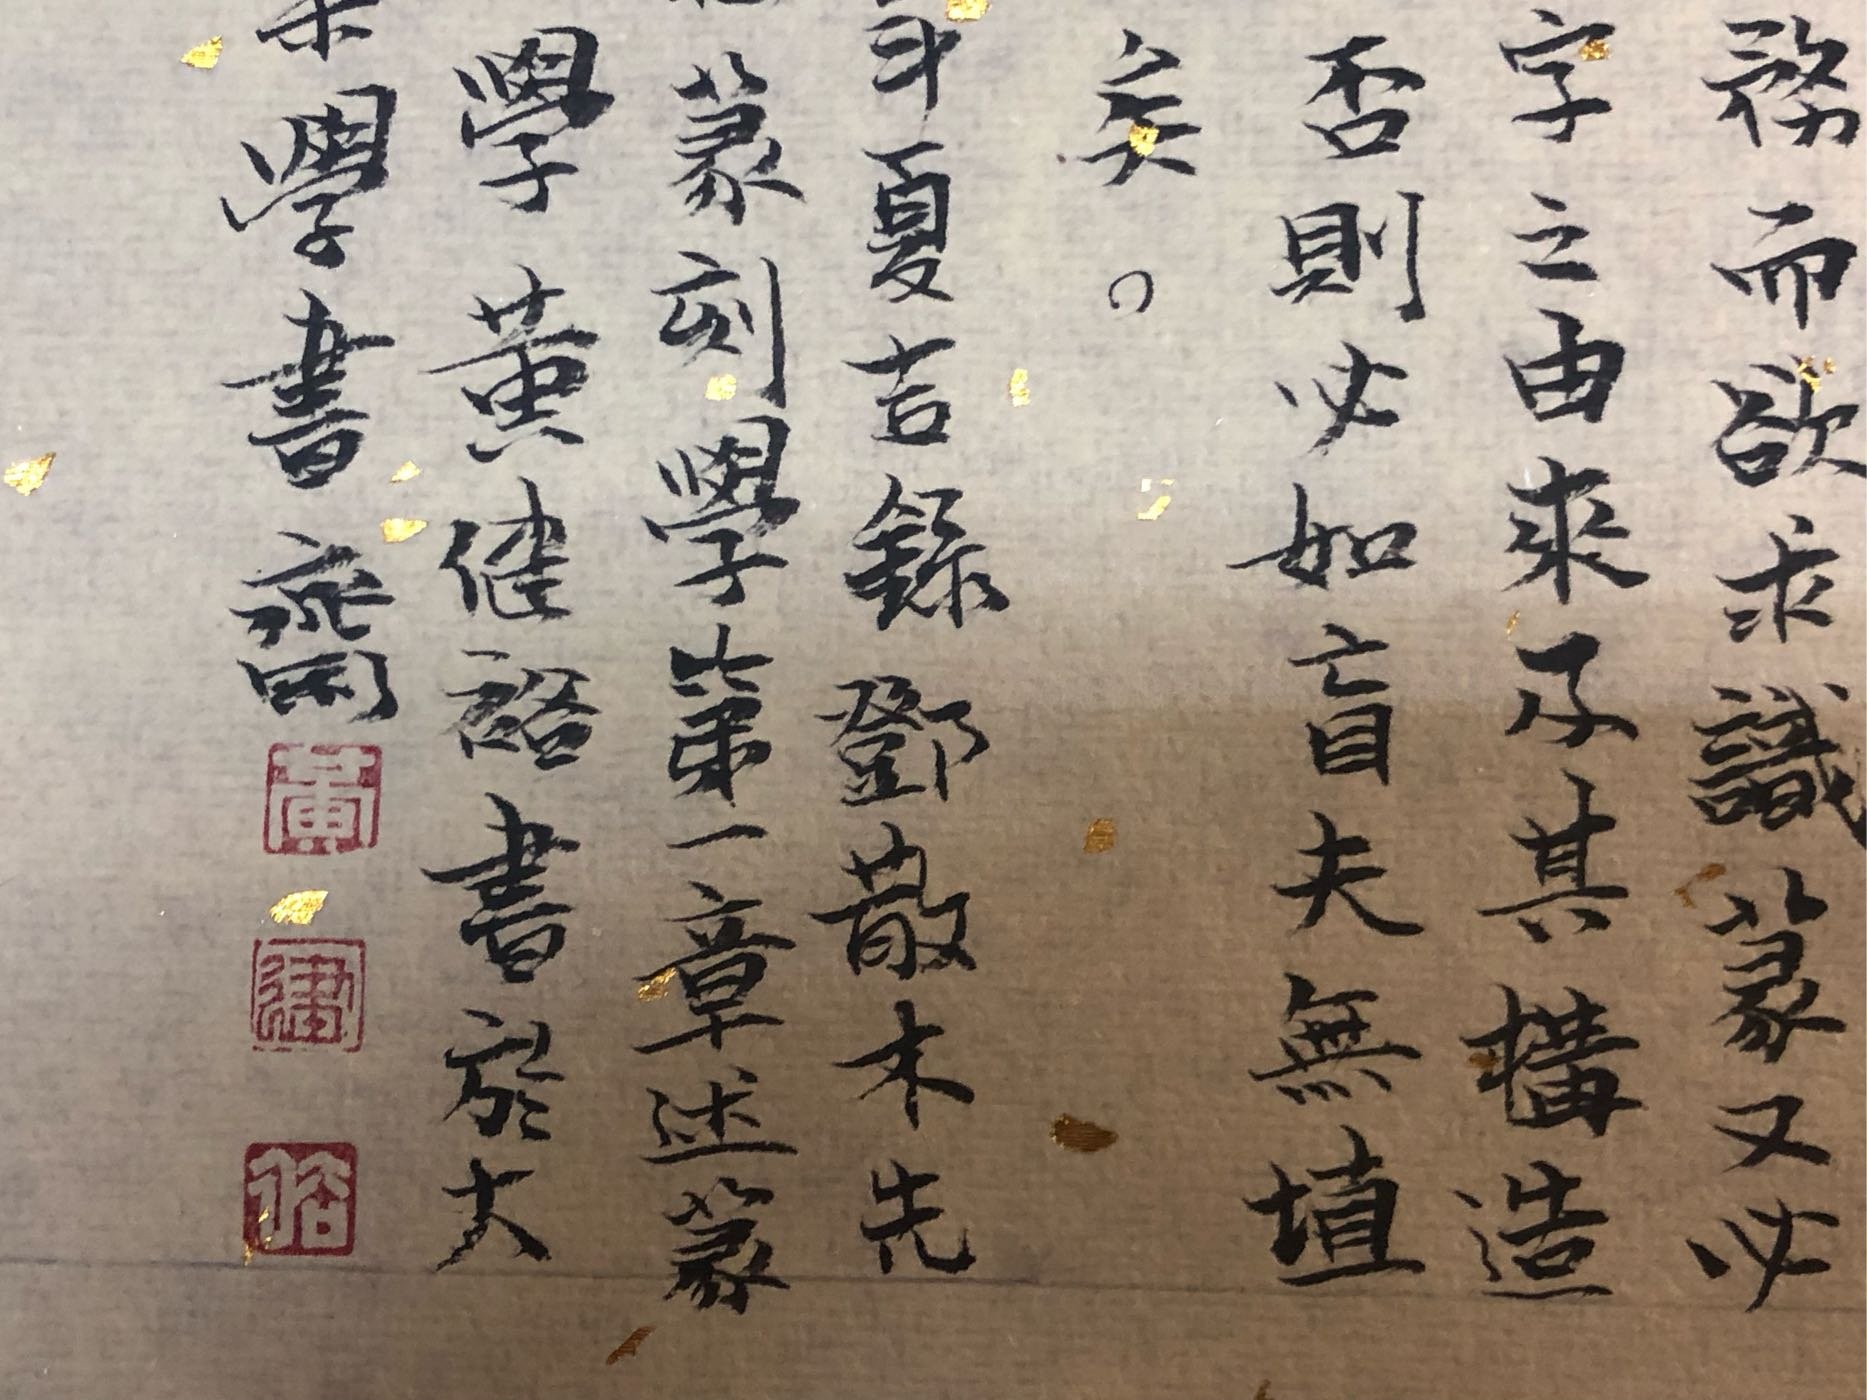 務而欲求識篆又必
字之由來及其構造
否則必如盲夫無埴
矣。
夏吉錄鄧散木先
篆刻學第一章述篆
學黃健語書於大
學書齋
黃
建
俗